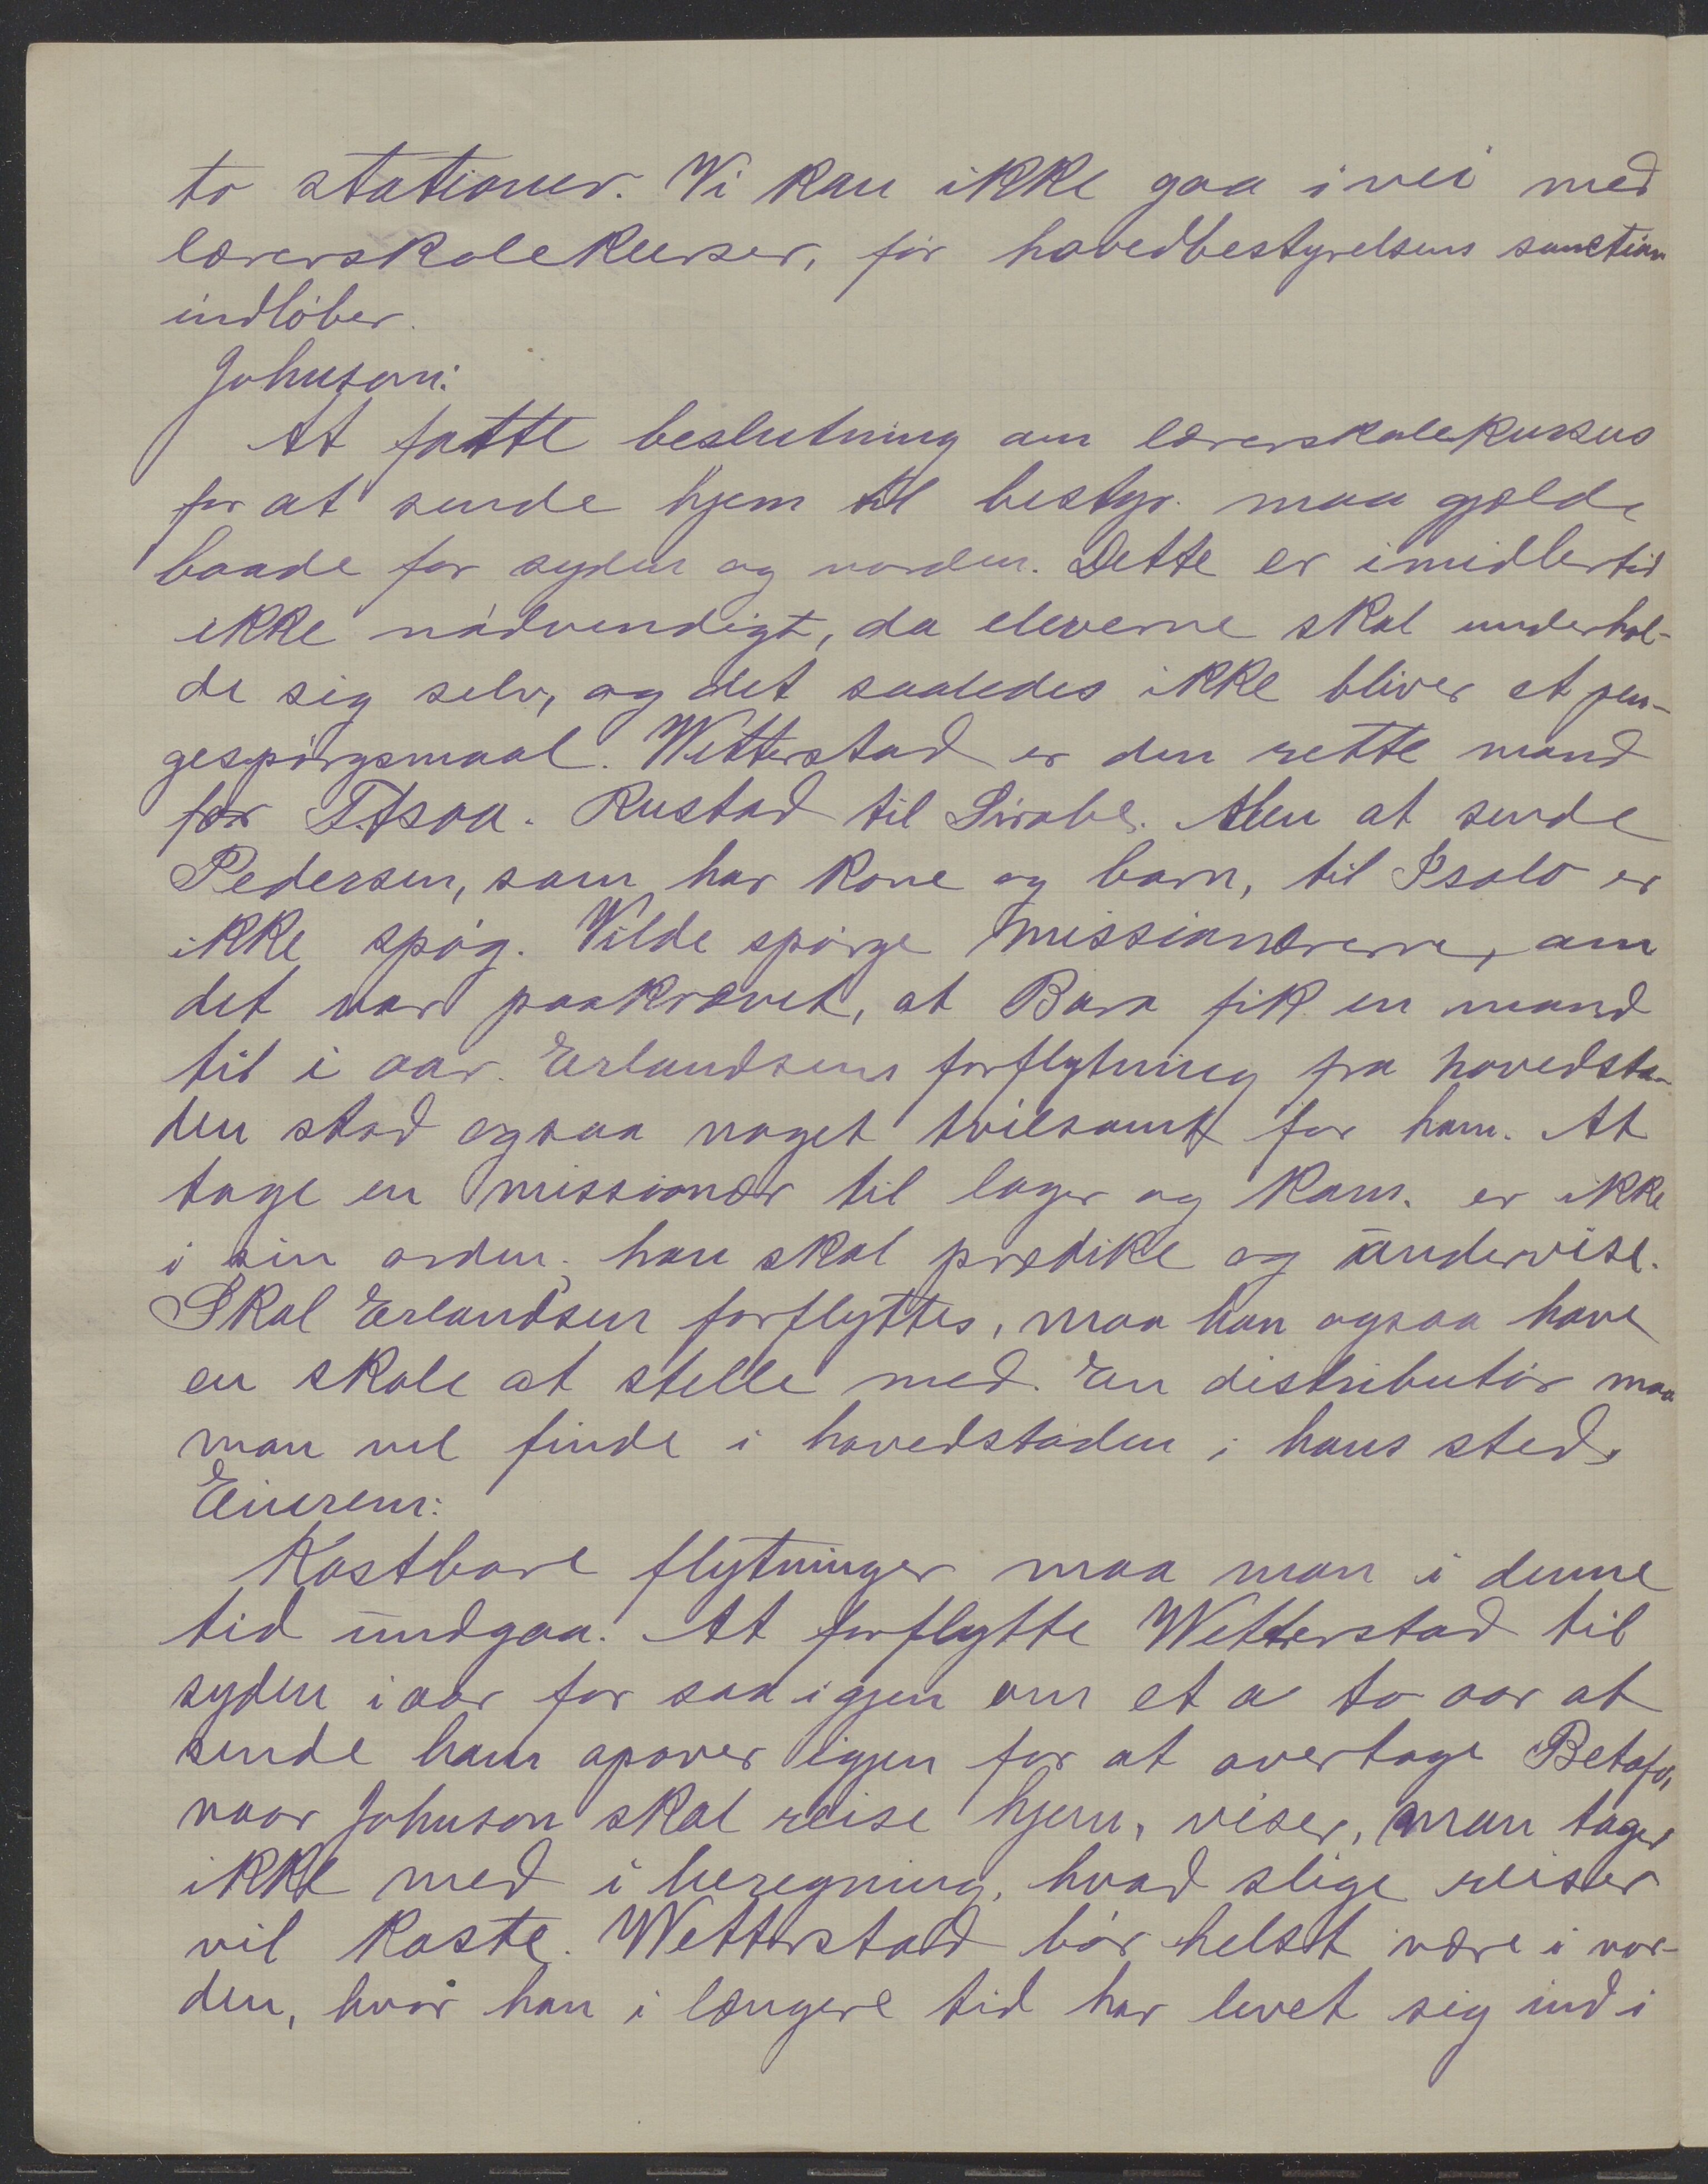 to stationer. Vi kan ikke gaa i vei med
lærerskolekurser, før hovedbestyrelsens sanction
indløber.
Johnson:
At fatte beslutning om lærerskolekursus
for at sende hjem til bestyr. maa gjelde
baade for syden og norden. Dette er imidlertid
ikke nødvendigt, da eleverne skal underhol-
de sig selv, og det saaledes ikke bliver et pen-
gespørgsmaal. Wetterstad er den rette mand
for T.tsoa. Rustad til Sirabe. Men at sende
Pedersen, som har kone og barn, til Isalo er
ikke spøg. Vilde spørge missionærerne, om
det var paakrævet, at Bara fik en mand
til i aar. Erlandsens forflytning fra hovedsta-
den stod ogsaa noget tvilsomt for ham. At
tage en missionær til lager og kom. er ikke
i sin orden; han skal prædike og undervise.
Skal Erlandsen forflyttes, maa han ogsaa have
en skole at stelle med. En distributør maa
man vel finde i hovedstaden i hans sted.
Einrem:
Kostbare flytninger maa man i denne
tid undgaa. At forflytte Wetterstad til
syden i aar for saa igjen om et a to aar at
sende ham opover igjen for at overtage Betafo,
naar Johnson skal reise hjem, viser, man tager
ikke med i beregning, hvad slige reiser
vil koste. Wetterstad bør helst være i nor-
den, hvor han i længere tid har levet sig ind i